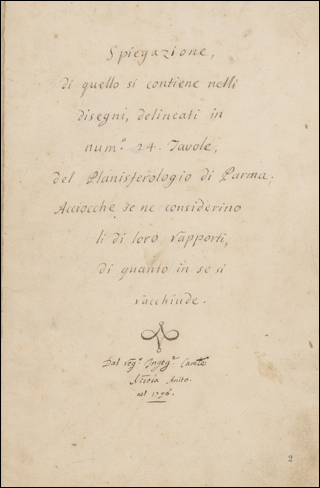 Spiegazione,
di quello si contiene nelli
disegni, delineati in
num.º 24. Tavole,
del Planisferologio di Parma.
Acciocche se ne considerino
li di loro rapporti,
di quanto in se si
racchiude.
Dal Ingeg.r
nel 1796.
2